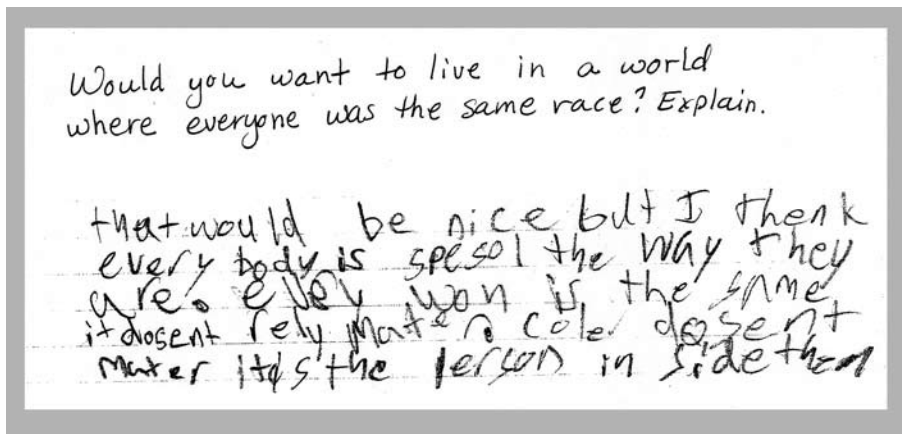 Would you want to live in a world
where everyone was the same race? Explain.
that would be nice but I thenk
every body is spesol the way they
are. evey won is the same
it dosent rely mater. coler dosent
mater it's the person in side them